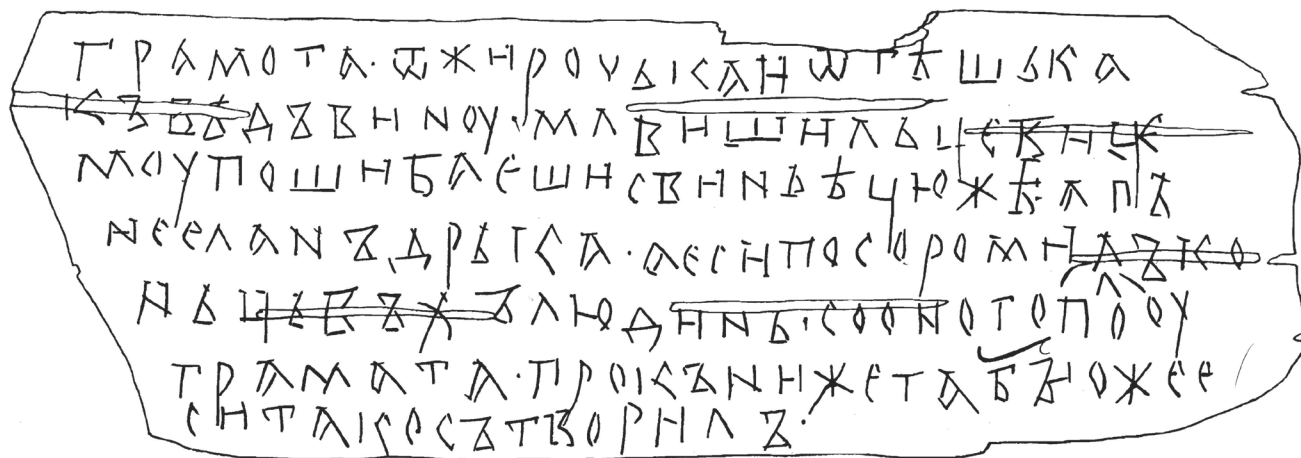 ГРАМОТА·ѾЖИРОЧЬКАИѾТѢШЬКА
КЪВЪДЪВИНОУ·МЛВИШИЛЬЦЕВИЦЕ
МОУПОШИБАЕШИСВИНЬѢЦЮЖѢАПЪ
НЕСЛАНЪДРЬКА·АЕСИПОСОРОМИЛЪКО
НЬЦЬВЪХЪЛЮДИНЬ·СООНОГОПОЛОУ
ГРАМАТА·ПРОКЪНИЖЕТАБЪІОЖЕЕ
СИТАКОСЪТВОРИЛЪ·